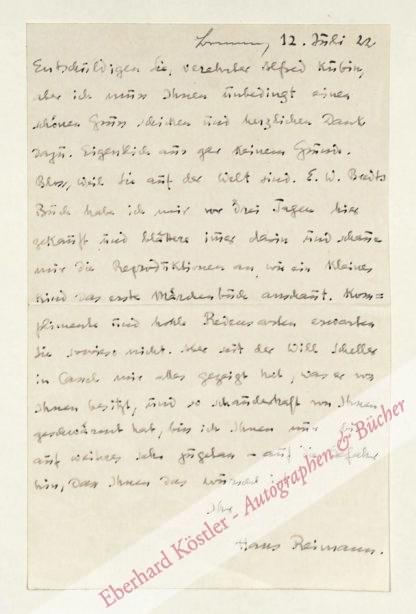 12. Juli 22
Entschuldigen Sie, verehrter Alfred Kubin,
aber ich muss Ihnen unbedingt einen
schönen Gruss schicken und herzlichen Dank
dazu. Eigentlich aus gar keinem Grunde.
Bloss, weil Sie auf der Welt sind. E. W. Bredts
Buch habe ich mir vor drei Tagen hier
gekauft und blättere immer darin und schaue
mir die Reproduktionen an, wie ein kleines
Kind das erste Märchenbuch anschaut. Kom=
plimente und hohle Redensarten erwarten
Sie sowieso nicht. Aber seit der Will Scheller
in Cassel mir alles gezeigt hat, was er von
Ihnen besitzt, und so schauderhaft von Ihnen
geschwärmt hat, bin ich Ihnen nun bis
auf weiteres sehr zugetan – auf die Gefahr
hin, dass Ihnen das wurscht ist.
Ihr
Hans Reimann.
Eberhard Köstler - Autographen & Bücher